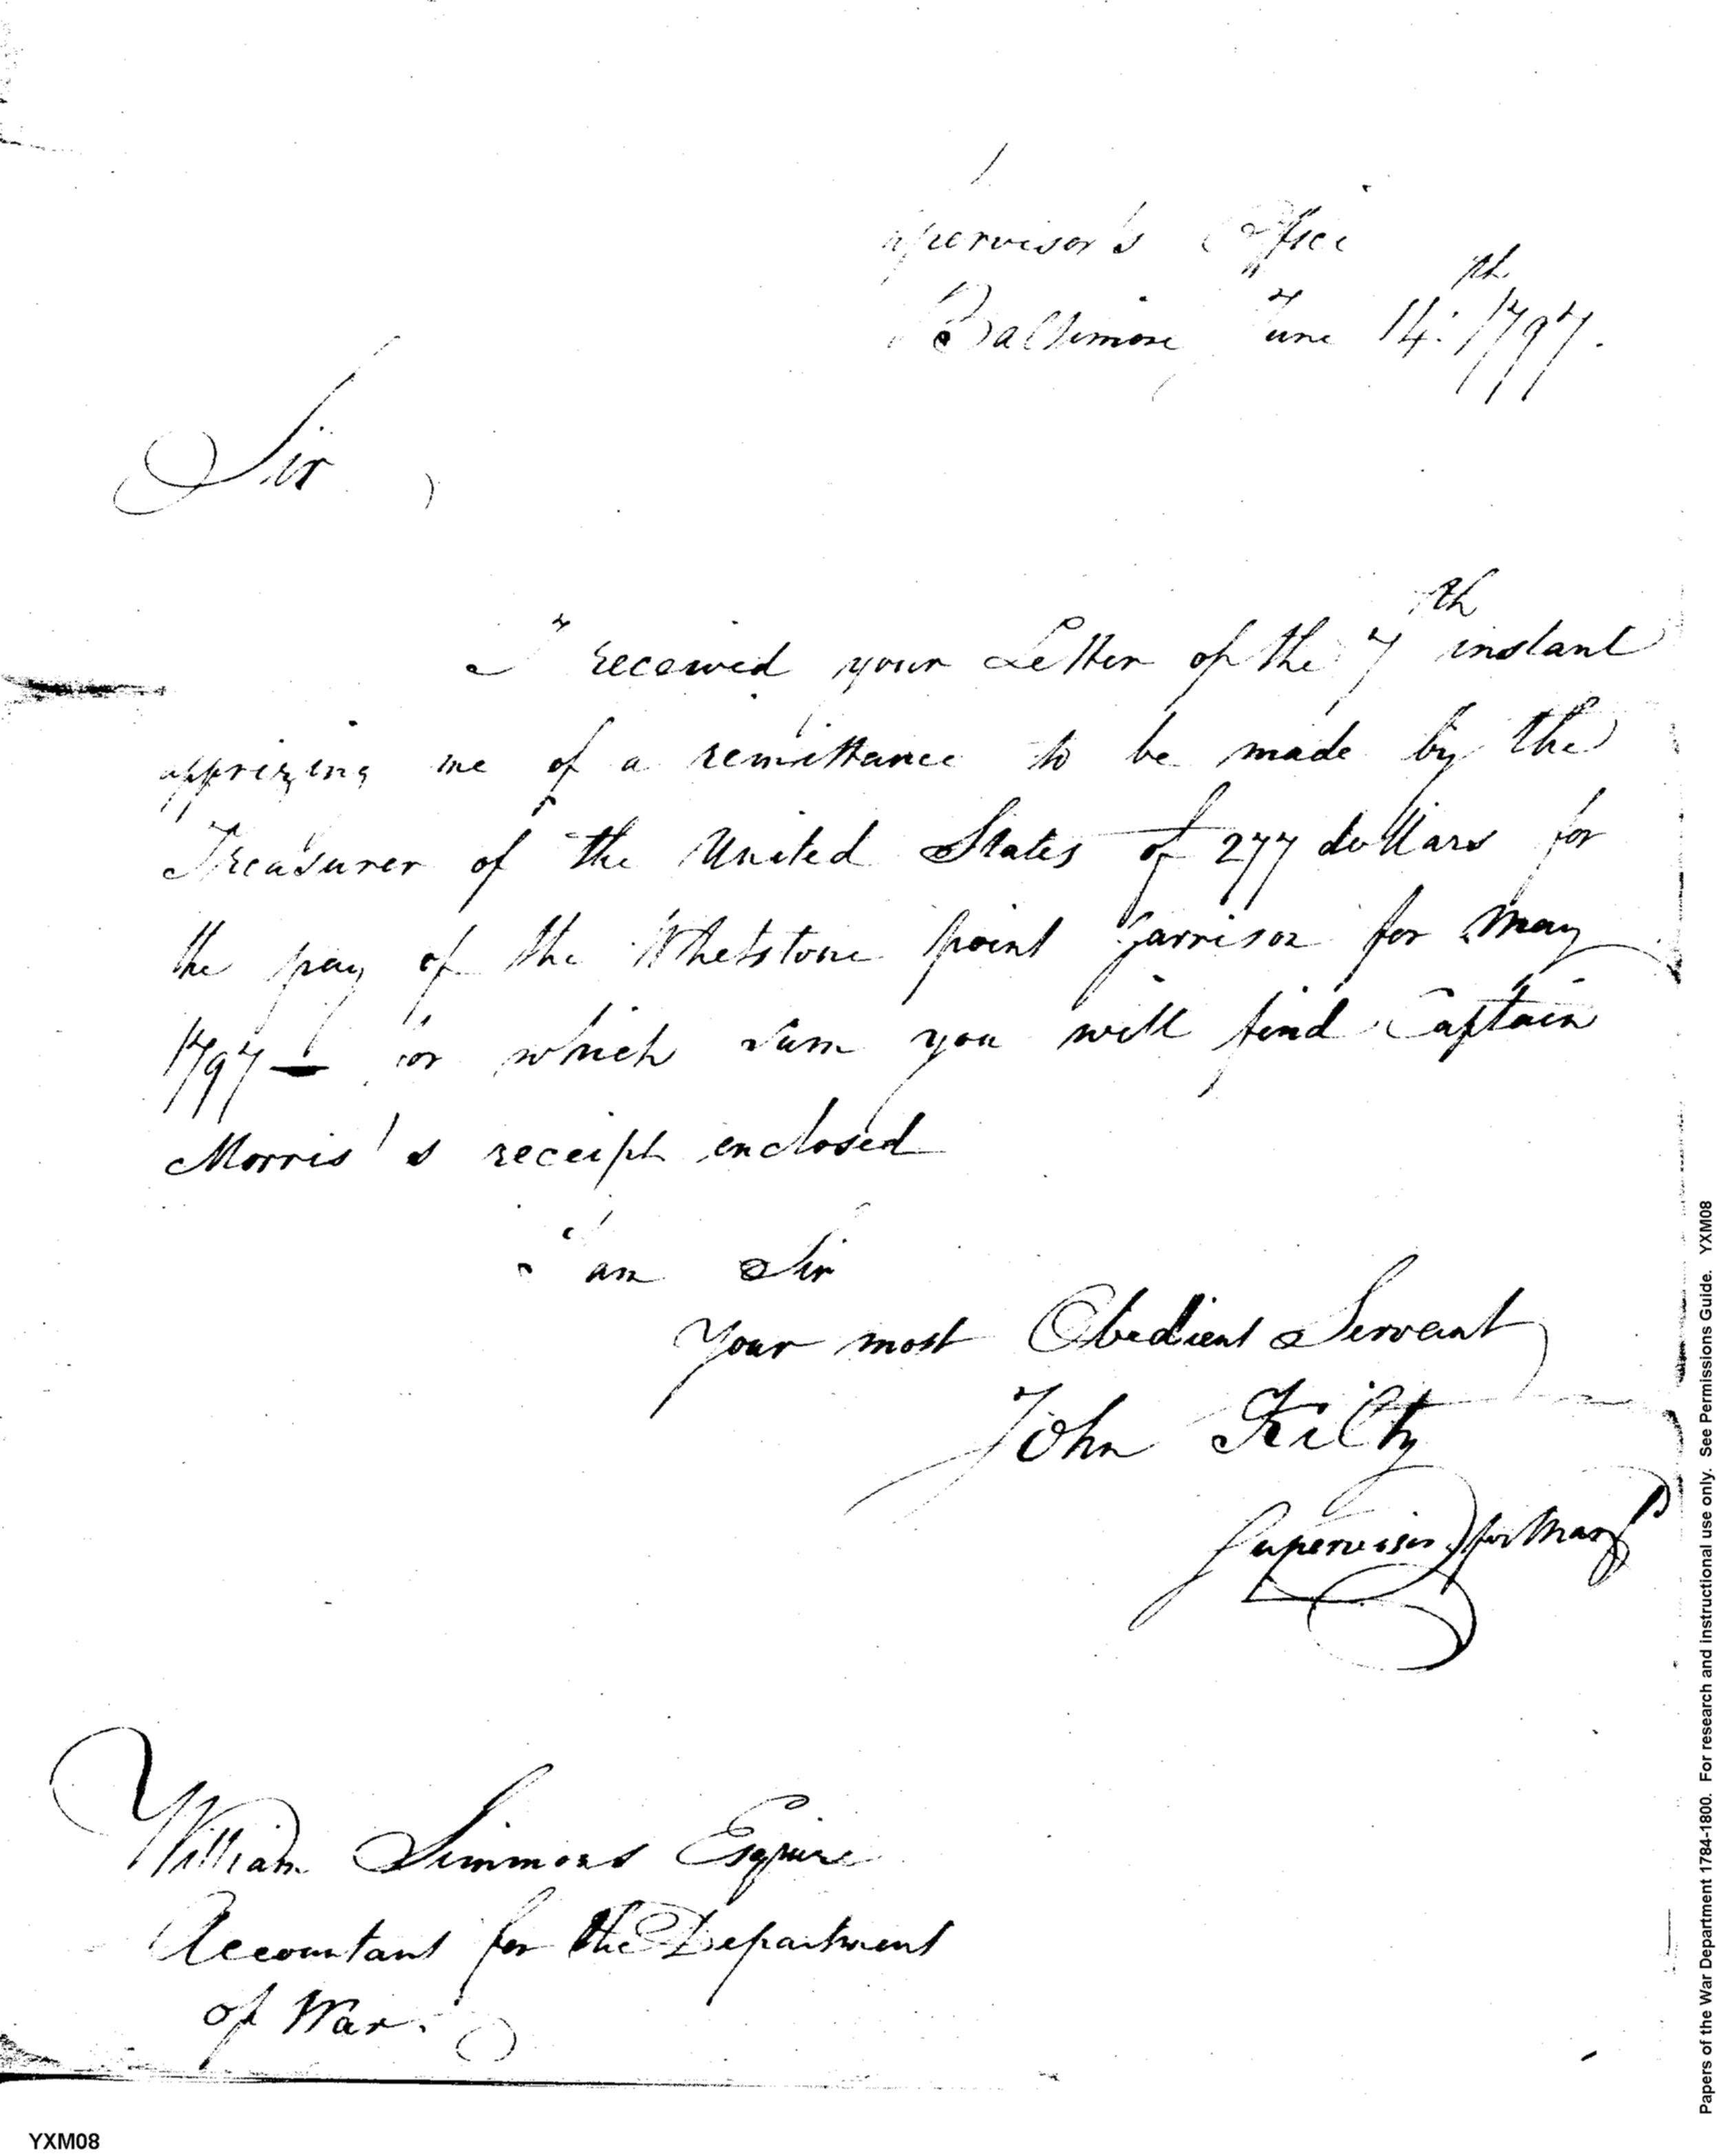 Supervisor's Office
Baltimore June 14th: 1797.
Sir,
I received your Letter of the 7th instant
apprizing me of a remittance to be made by the
Treasurer of the United States of 277 dollars for
the pay of the Whetstone point Garrison for May
1797— for which sum you will find Captain
Morris's receipt enclosed
I am Sir
Your most Obedient Servant
John Kilty
Supervisor for Maryd
William Simmons Esquire
Accountant for the Department
of War.
YXM08
Papers of the War Department 1784-1800. For research and instructional use only. See Permissions Guide. YXM08